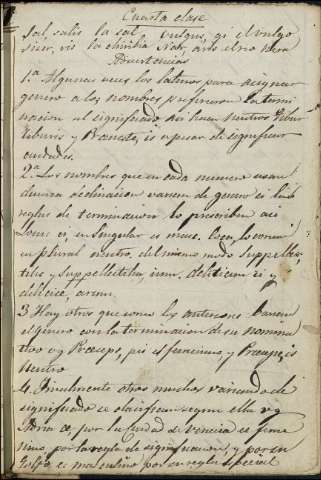 Cuarta clase
Sal, salis la sal, Vulgus, gi el vulgo
Siser, ris la chirivia Nar, aris el rio Nera
Advertencias
1.a Algunas veces los latinos para asignar
genero a los nombres prefirieron la termi
nacion al significado asi hacen neutros Tibur
Tiburis y Preneste, is a pesar de significar
ciudades.
2.a Los nombres que en cada numero usan
diversa declinacion varian de genero si las
reglas de terminacion lo prescriben asi
Locus ci, en singular es masc. Loca, locorum
en plural neutro, del mismo modo Suppellex,
tilis y Suppellectilia, ium. delicium ii y
deliciæ, arum.
3. Hay otros que como los anteriores varian
el genero con la terminacion de su nomina
tivo vg Præceps, pis es femenino, y Præceps, is
Neutro
4. Finalmente otros muchos variando de
significado se clasifican segun ella vg
Adria æ, por la ciudad de Venecia es feme
nino por la regla de significacion, y por su
Golfo es masculino por su regla special